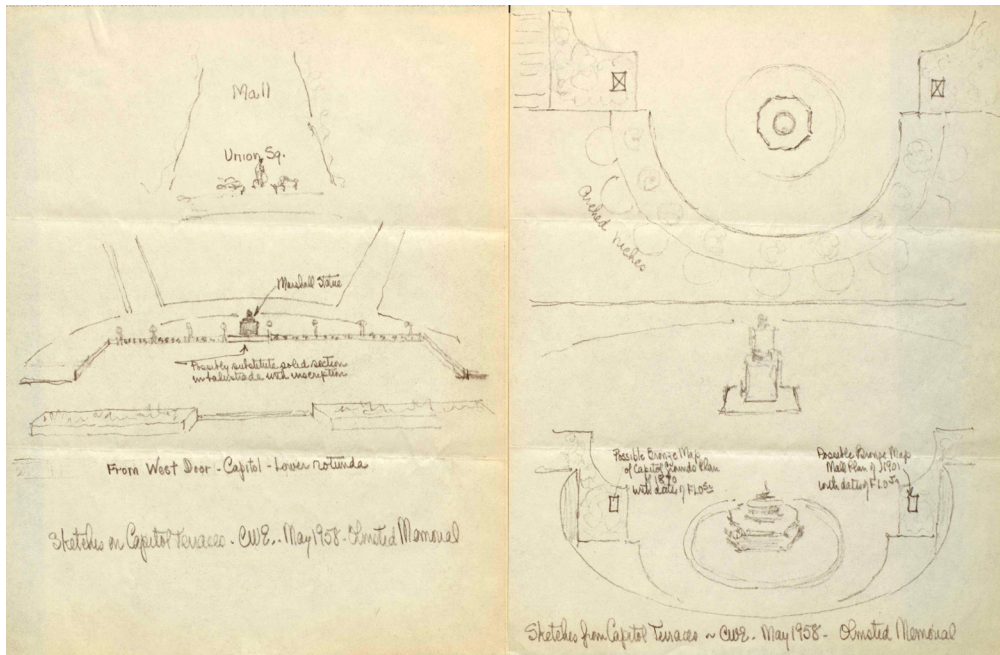 Mall
Union Sq.
Marshall Statue
Possibly substitute solid section
in balustrade with inscription
From West Door - Capitol - Lower rotunda
Sketches on Capitol Terraces - CWE. - May 1958 - Olmsted Memorial
Arched niches
Possible Bronze Map
of Capitol Grounds Plan
with dates of FLO Sr
Possible Bronze Map
Mall Plan of 1901
with dates of FLO Jr
Sketches from Capitol Terraces ~ CWE. May 1958 - Olmsted Memorial